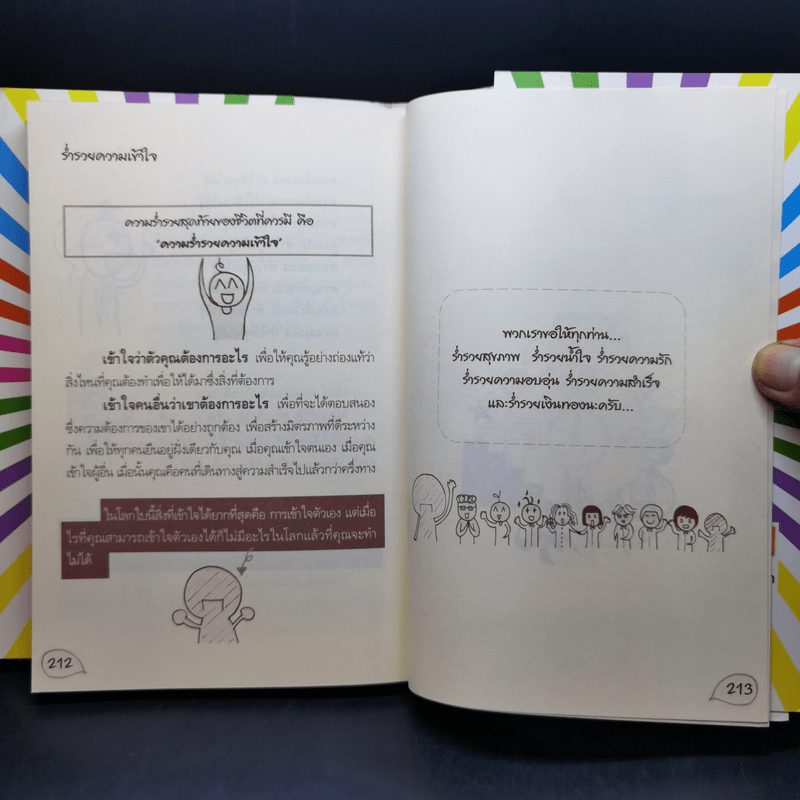 ร่ำรวยความเข้าใจ
ความร่ำรวยสุดท้ายของชีวิตที่ควรมี คือ
'ความร่ำรวยความเข้าใจ'
เข้าใจว่าตัวคุณต้องการอะไร เพื่อให้คุณรู้อย่างถ่องแท้ว่า
สิ่งไหนที่คุณต้องทำเพื่อให้ได้มาซึ่งสิ่งที่ต้องการ
เข้าใจคนอื่นว่าเขาต้องการอะไร เพื่อที่จะได้ตอบสนอง
ซึ่งความต้องการของเขาได้อย่างถูกต้อง เพื่อสร้างมิตรภาพที่ดีระหว่าง
กัน เพื่อให้ทุกคนยืนอยู่ฝั่งเดียวกับคุณ เมื่อคุณเข้าใจตนเอง เมื่อคุณ
เข้าใจผู้อื่น เมื่อนั้นคุณคือคนที่เดินทางสู่ความสำเร็จไปแล้วกว่าครึ่งทาง
ในโลกใบนี้สิ่งที่เข้าใจได้ยากที่สุดคือ การเข้าใจตัวเอง แต่เมื่อ
ไรที่คุณสามารถเข้าใจตัวเองได้ก็ไม่มีอะไรในโลกแล้วที่คุณจะทำ
ไม่ได้
212
พวกเราขอให้ทุกท่าน...
ร่ำรวยสุขภาพ ร่ำรวยน้ำใจ ร่ำรวยความรัก
ร่ำรวยความอบอุ่น ร่ำรวยความสำเร็จ
และร่ำรวยเงินทองนะครับ...
213